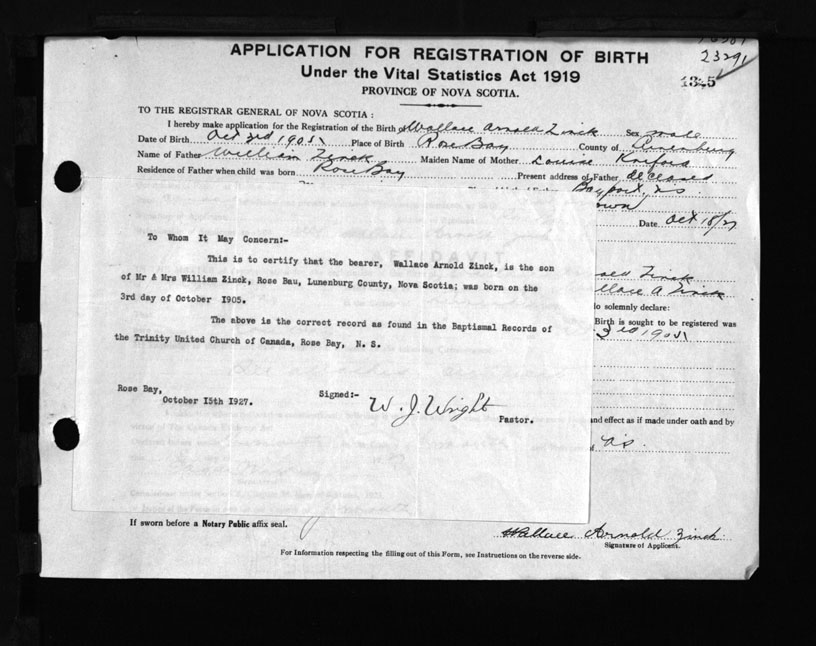 23291
1345
APPLICATION FOR REGISTRATION OF BIRTH
Under the Vital Statistics Act 1919
PROVINCE OF NOVA SCOTIA.
TO THE REGISTRAR GENERAL OF NOVA SCOTIA :
I hereby make application for the Registration of the Birth of Wallace Arnold Zinck Sex male
Date of Birth Oct 3rd 1905 Place of Birth Rose Bay County of Lunenburg
Name of Father William Zinck Maiden Name of Mother Louise
Residence of Father when child was born Rose Bay Present address of Father deceased
Bayport, NS
Date Oct 18/27
To Whom It May Concern:-
This is to certify that the bearer, Wallace Arnold Zinck, is the son
of Mr & Mrs William Zinck, Rose Bau, Lunenburg County, Nova Scotia; was born on the
3rd day of October 1905.
The above is the correct record as found in the Baptismal Records of
the Trinity United Church of Canada, Rose Bay, N. S.
Rose Bay,
October 15th 1927.
Signed:- W. J. Wright
Pastor.
nold Zinck
llace A Zinck
do solemnly declare:
Birth is sought to be registered was
3rd 1905
and effect as if made under oath and by
If sworn before a Notary Public affix seal.
Wallace Arnold Zinck
Signature of Applicant.
For Information respecting the filling out of this Form, see Instructions on the reverse side.